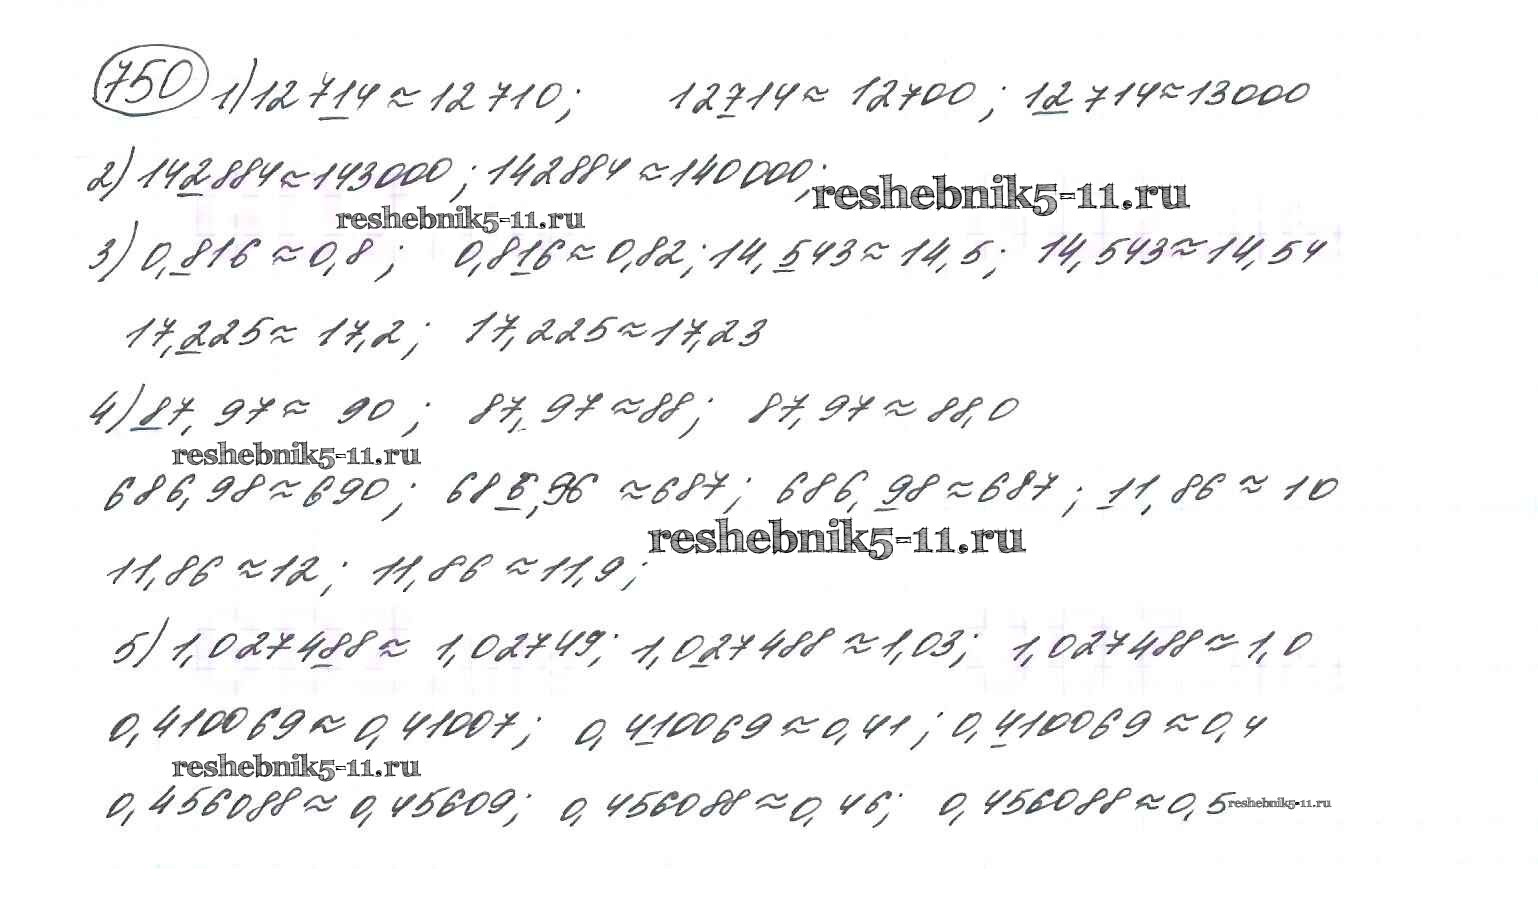 750 1) 12714 ≈ 12710; 12714 ≈ 12700; 12714 ≈ 13000
2) 142884 ≈ 143000; 142884 ≈ 140000; reshebnik5-11.ru
reshebnik5-11.ru
3) 0,816 ≈ 0,8; 0,816 ≈ 0,82; 14,543 ≈ 14,5; 14,543 ≈ 14,54
17,225 ≈ 17,2; 17,225 ≈ 17,23
4) 87,97 ≈ 90; 87,97 ≈ 88; 87,97 ≈ 88,0
reshebnik5-11.ru
686,98 ≈ 690; 686,96 ≈ 687; 686,98 ≈ 687; 11,86 ≈ 10
reshebnik5-11.ru
11,86 ≈ 12; 11,86 ≈ 11,9;
5) 1,027488 ≈ 1,02749; 1,027488 ≈ 1,03; 1,027488 ≈ 1,0
0,410069 ≈ 0,41007; 0,410069 ≈ 0,41; 0,410069 ≈ 0,4
reshebnik5-11.ru
0,456088 ≈ 0,45609; 0,456088 ≈ 0,46; 0,456088 ≈ 0,5 reshebnik5-11.ru